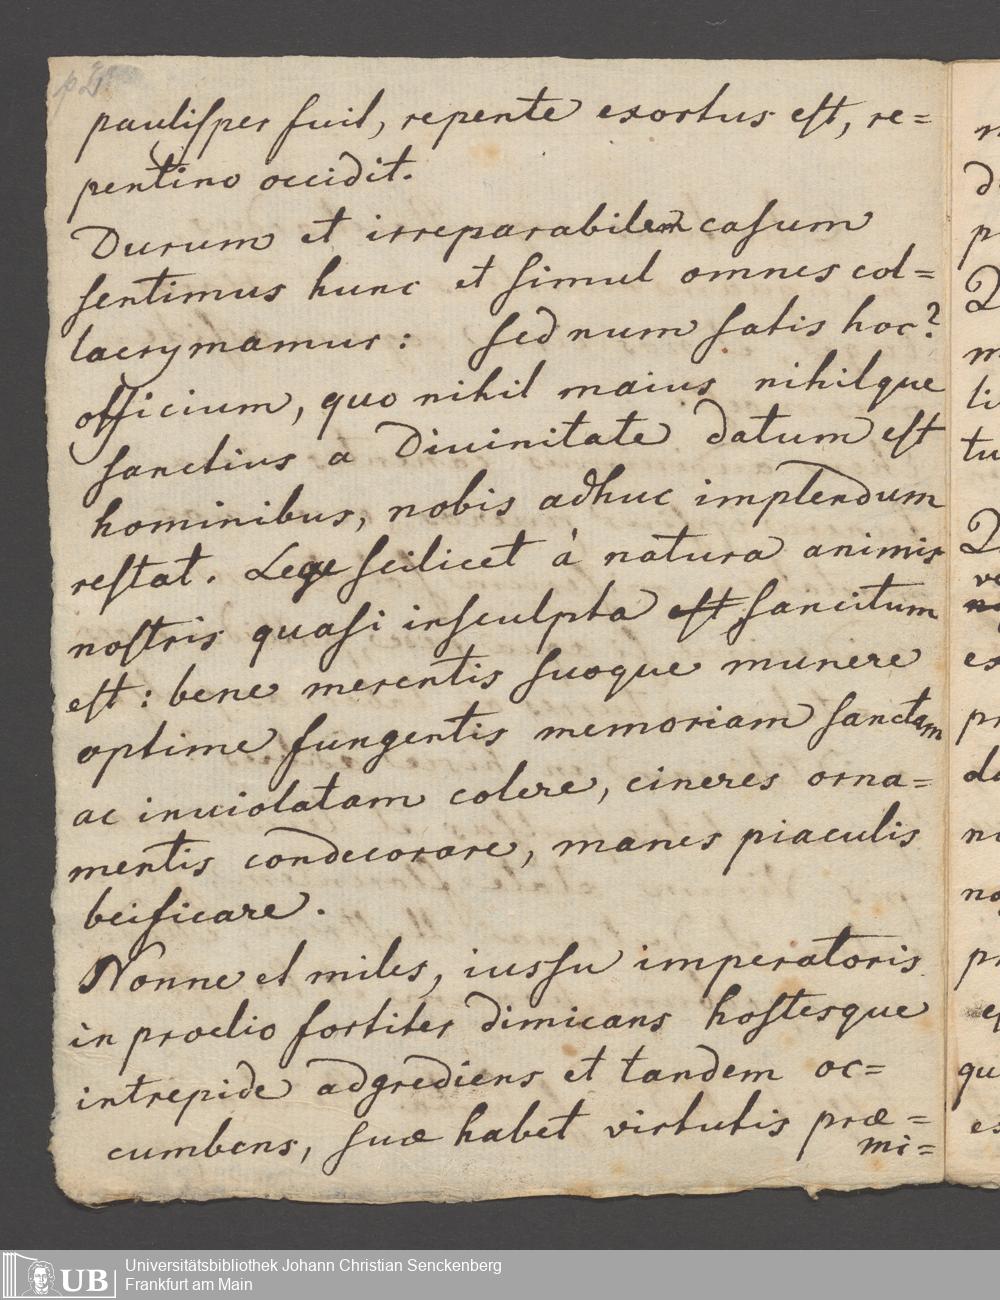 paulisper fuit, repente exortus est, re=
pentino occidit.
Durum et irreparabilem casum
sentimus hunc et simul omnes col=
lacrymamur: sed num satis hoc?
officium, quo nihil maius nihilque
sanctius a Diuinitate datum est
hominibus, nobis adhuc implendum
restat. Lege scilicet à natura animis
nostris quasi insculpta est sancitum
est: bene merentis suoque munere
optime fungentis memoriam sanctam
ac inuiolatam colere, cineres orna=
mentis condecorare, manes piaculis
beificare.
Nonne et miles, iussu imperatoris
in proelio fortiter dimicans hostesque
intrepide adgrediens et tandem oc=
cumbens, suæ habet virtutis præ=
mi=
UB
Universitätsbibliothek Johann Christian Senckenberg
Frankfurt am Main